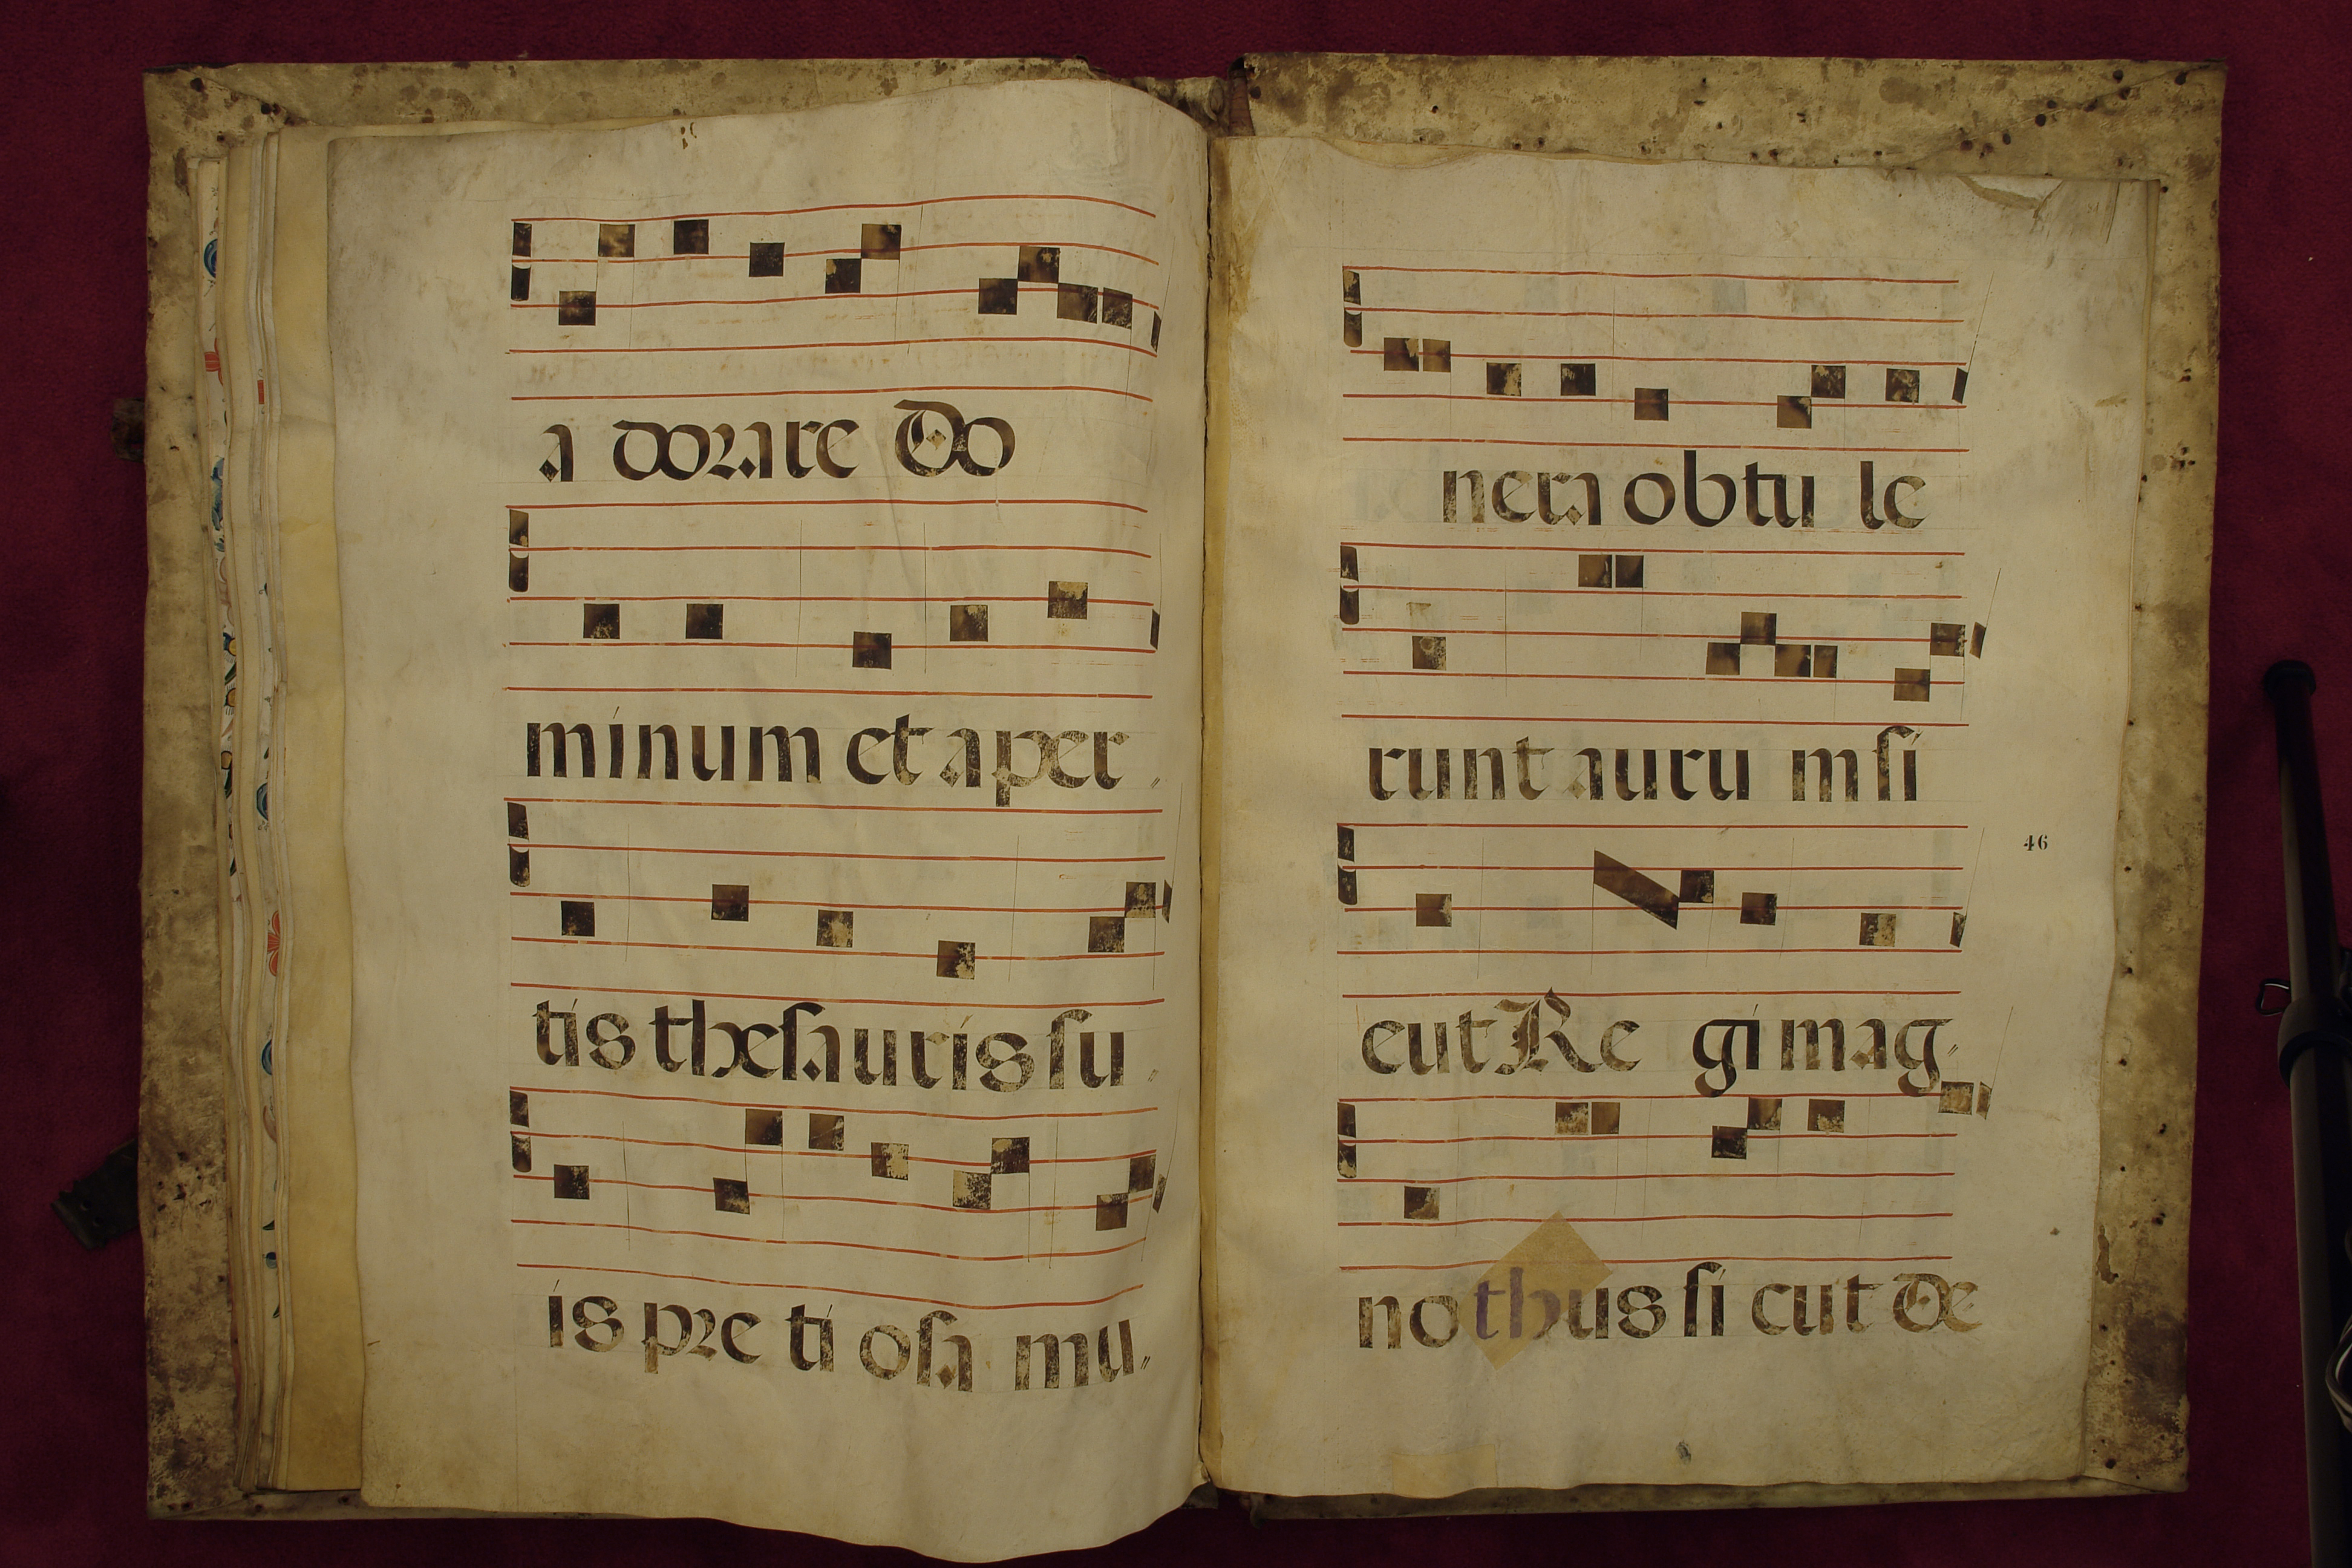 a dorare Do
minum et aper
tis thesauris su
is pre ti osa mu
nera obtu le
runt auru m si
46
cut Re gi mag
no thus si cut De